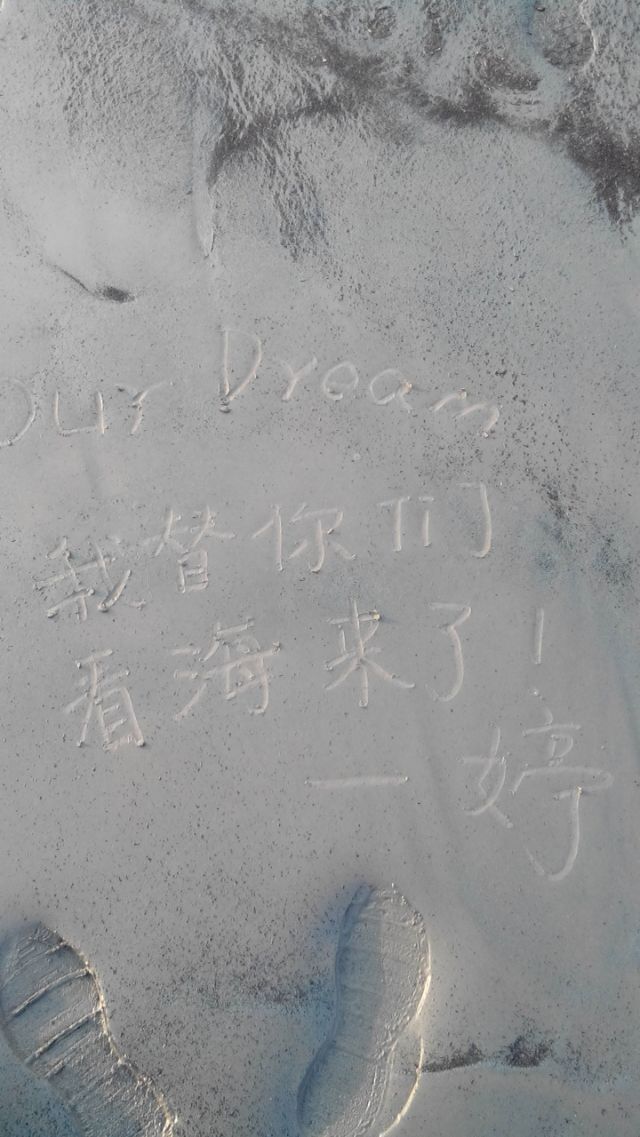 Our Dream
我替你们
看海来了！
一婷